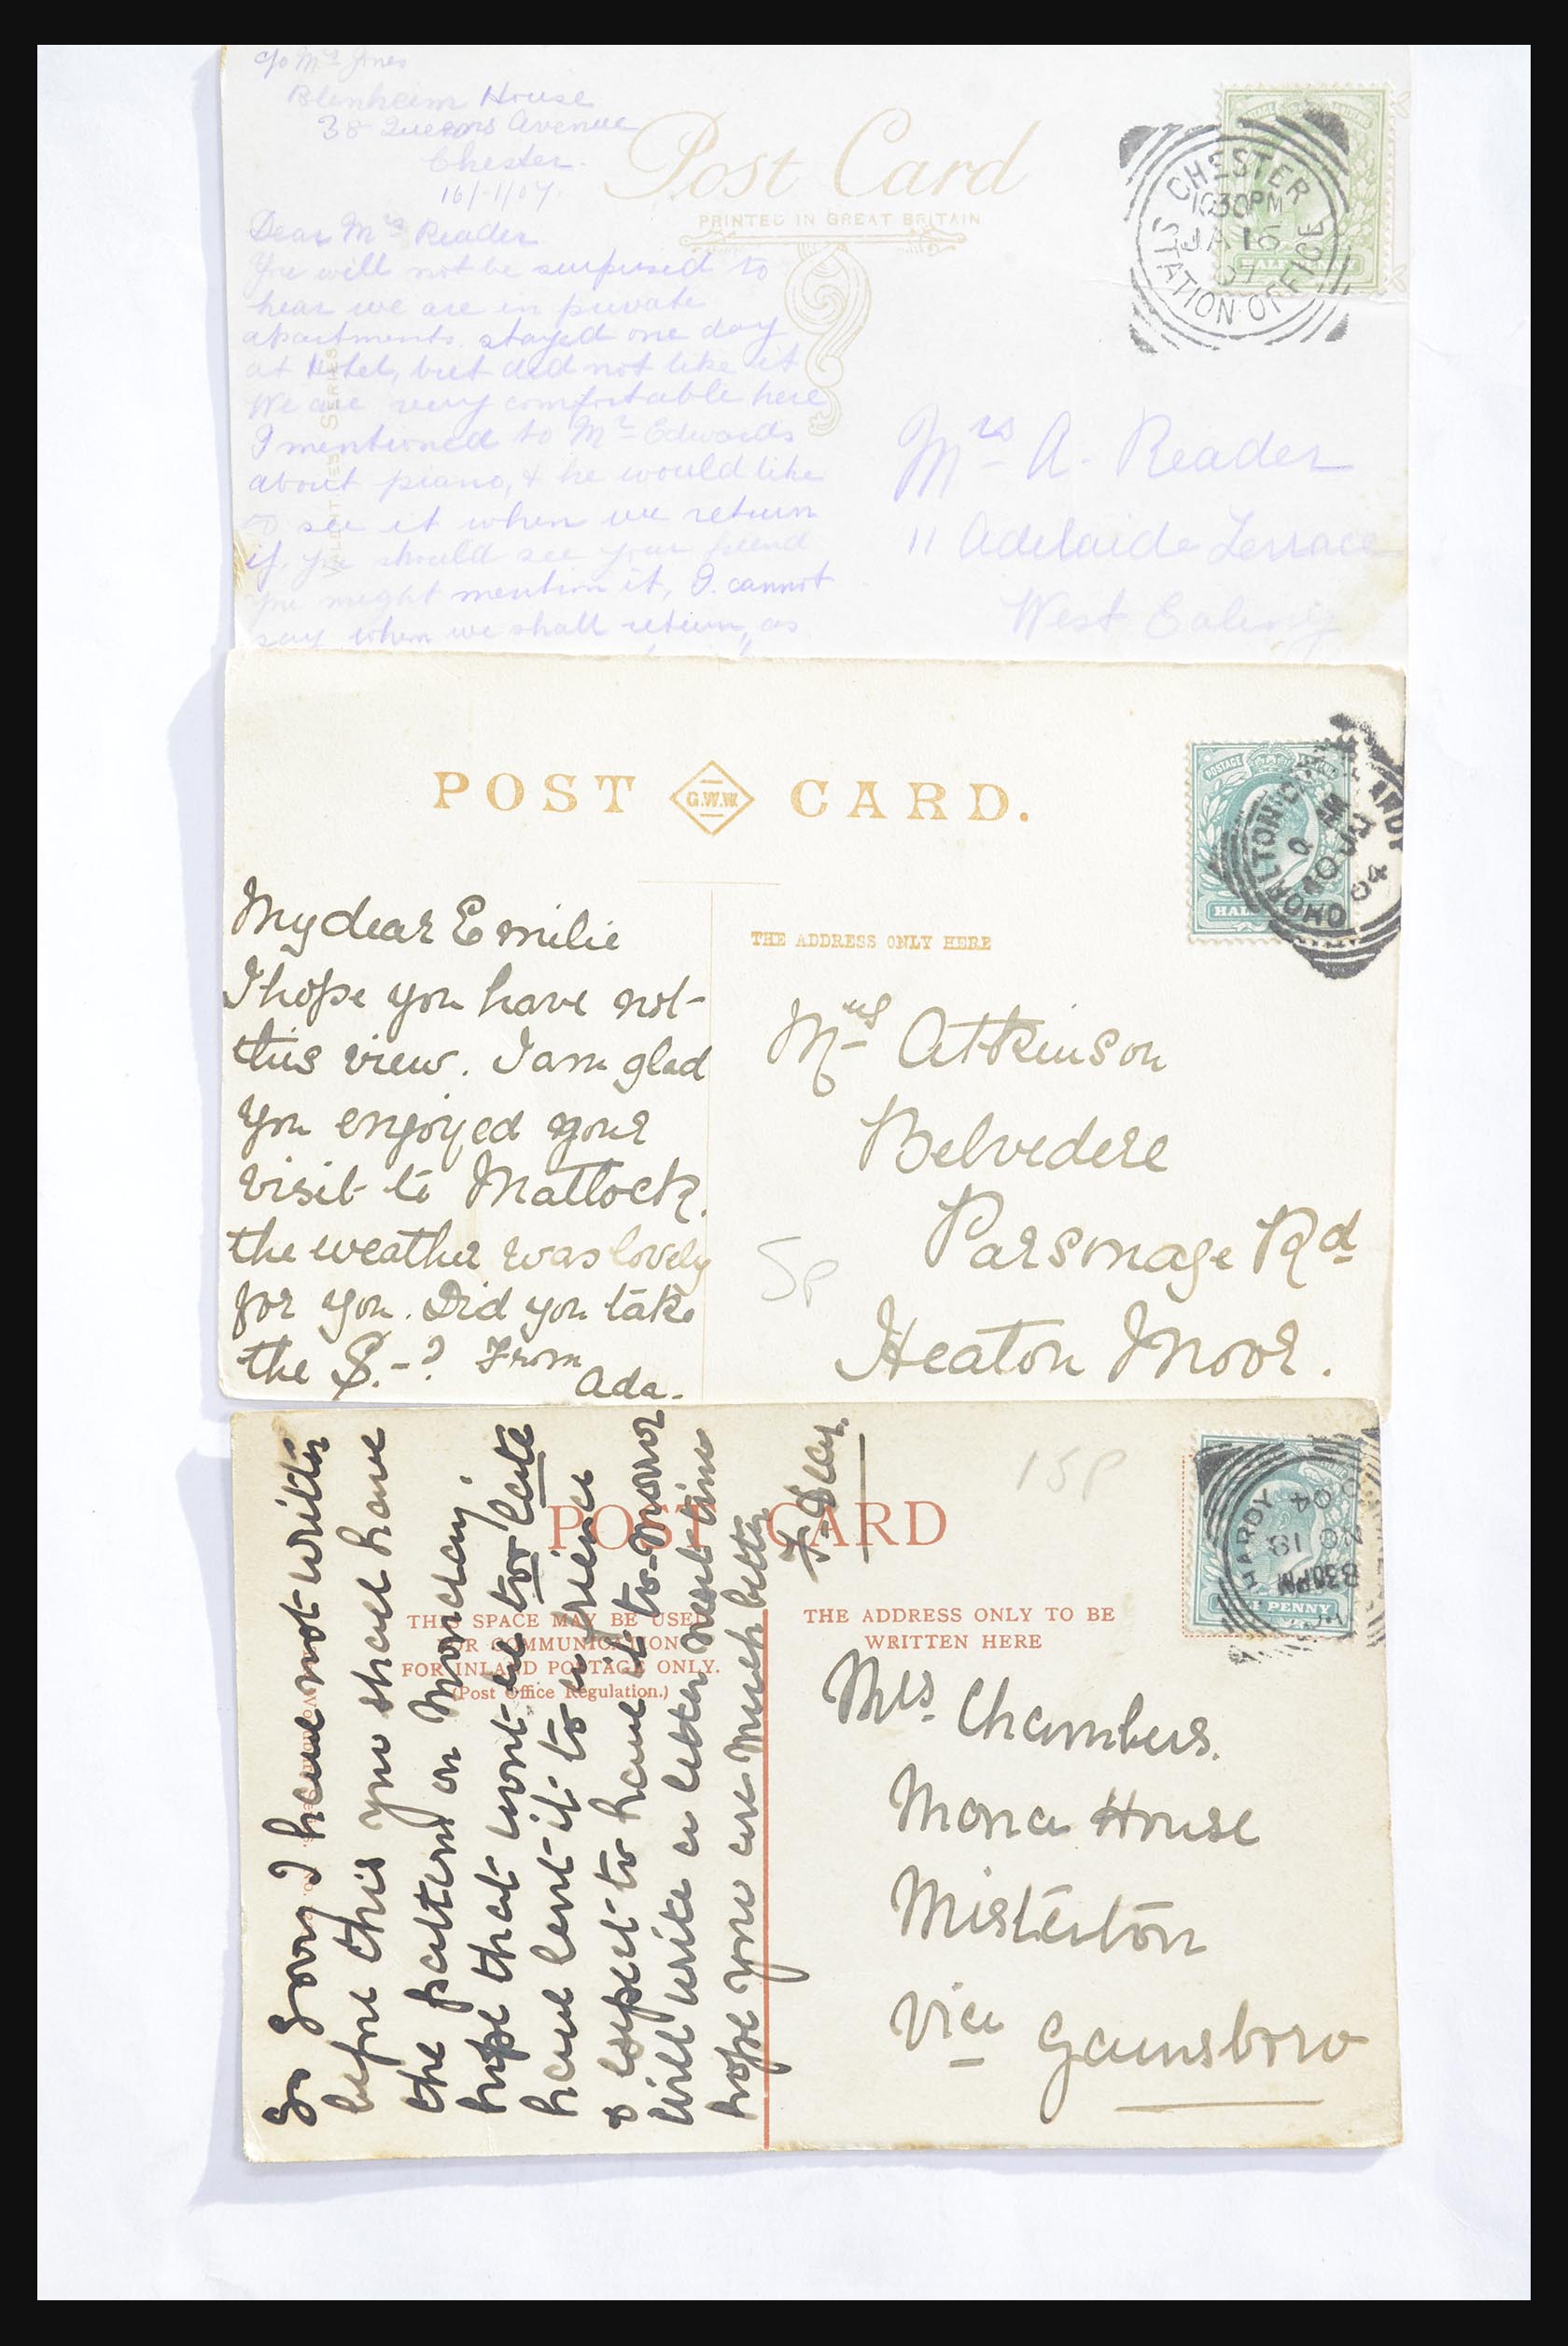 c/o Mrs Jones
Blenheim House
38 Queens Avenue
Chester.
16/1/07.
Dear Mrs Reader
You will not be surprised to
hear we are in private
apartments. stayed one day
at Hotel, but did not like it
We are very comfortable here
I mentioned to Mr Edwards
about piano, & he would like
to see it when we return
if you should see your friend
you might mention it, I cannot
say when we shall return, as
VALENTINES SERIES
Post Card
PRINTED IN GREAT BRITAIN
CHESTER
10 30PM
JA 16
07
STATION OFFICE
HALFPENNY
Mrs A. Reader
11 Adelaide Terrace
West Ealing
POST G.W.W. CARD.
My dear Emilie
I hope you have not
this view. I am glad
you enjoyed your
visit to Matlock.
the weather was lovely
for you. Did you take
the S.-? From
Ada.
THE ADDRESS ONLY HERE
POSTAGE
CHORLTON
HARDY
04
Mrs Atkinson
Belvedere
Parsonage Rd
Heaton Moor.
5p
POST CARD
THIS SPACE MAY BE USED
FOR COMMUNICATION
FOR INLAND POSTAGE ONLY.
(Post Office Regulation.)
So sorry I have not written
before this you shall have
the pattern on Monday.
hope that wont be too late
have lent it to a friend
& expect to have it to-morror
will write a letter next time
hope you are much better
15p
THE ADDRESS ONLY TO BE
WRITTEN HERE
HARDY
8 30PM
NO 18
04
PENNY
Mrs. Chambers.
Mona House
Misterton
Via Gainsboro